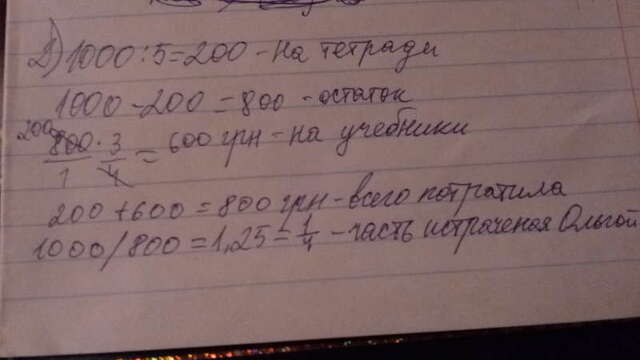 1) 1000 : 5 = 200 - на тетради
1000 - 200 = 800 - остаток
200
800/1 · 3/4 = 600 грн - на учебники
200 + 600 = 800 грн - всего потратила
1000/800 = 1,25 = 1/4 - часть истраченая Ольгой